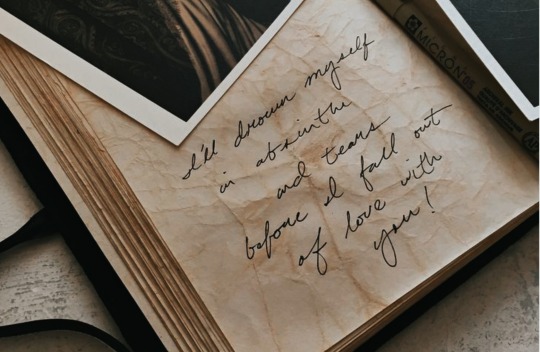 MICRON
I'll drown myself
in absinthe
and tears
before I fall out
of love with
you!